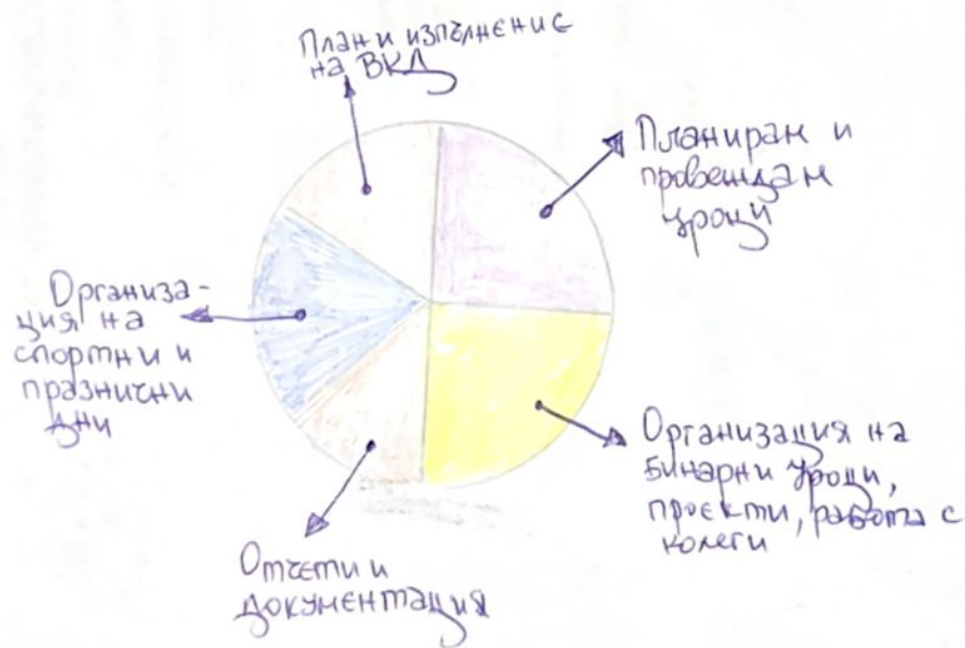 План и изпълнение
на ВКД
Планирам и
провеждам
уроци
Организа-
ция на
спортни и
празнични
дни
Организация на
бинарни уроци,
проекти, работа с
колеги
Отчети и
документация